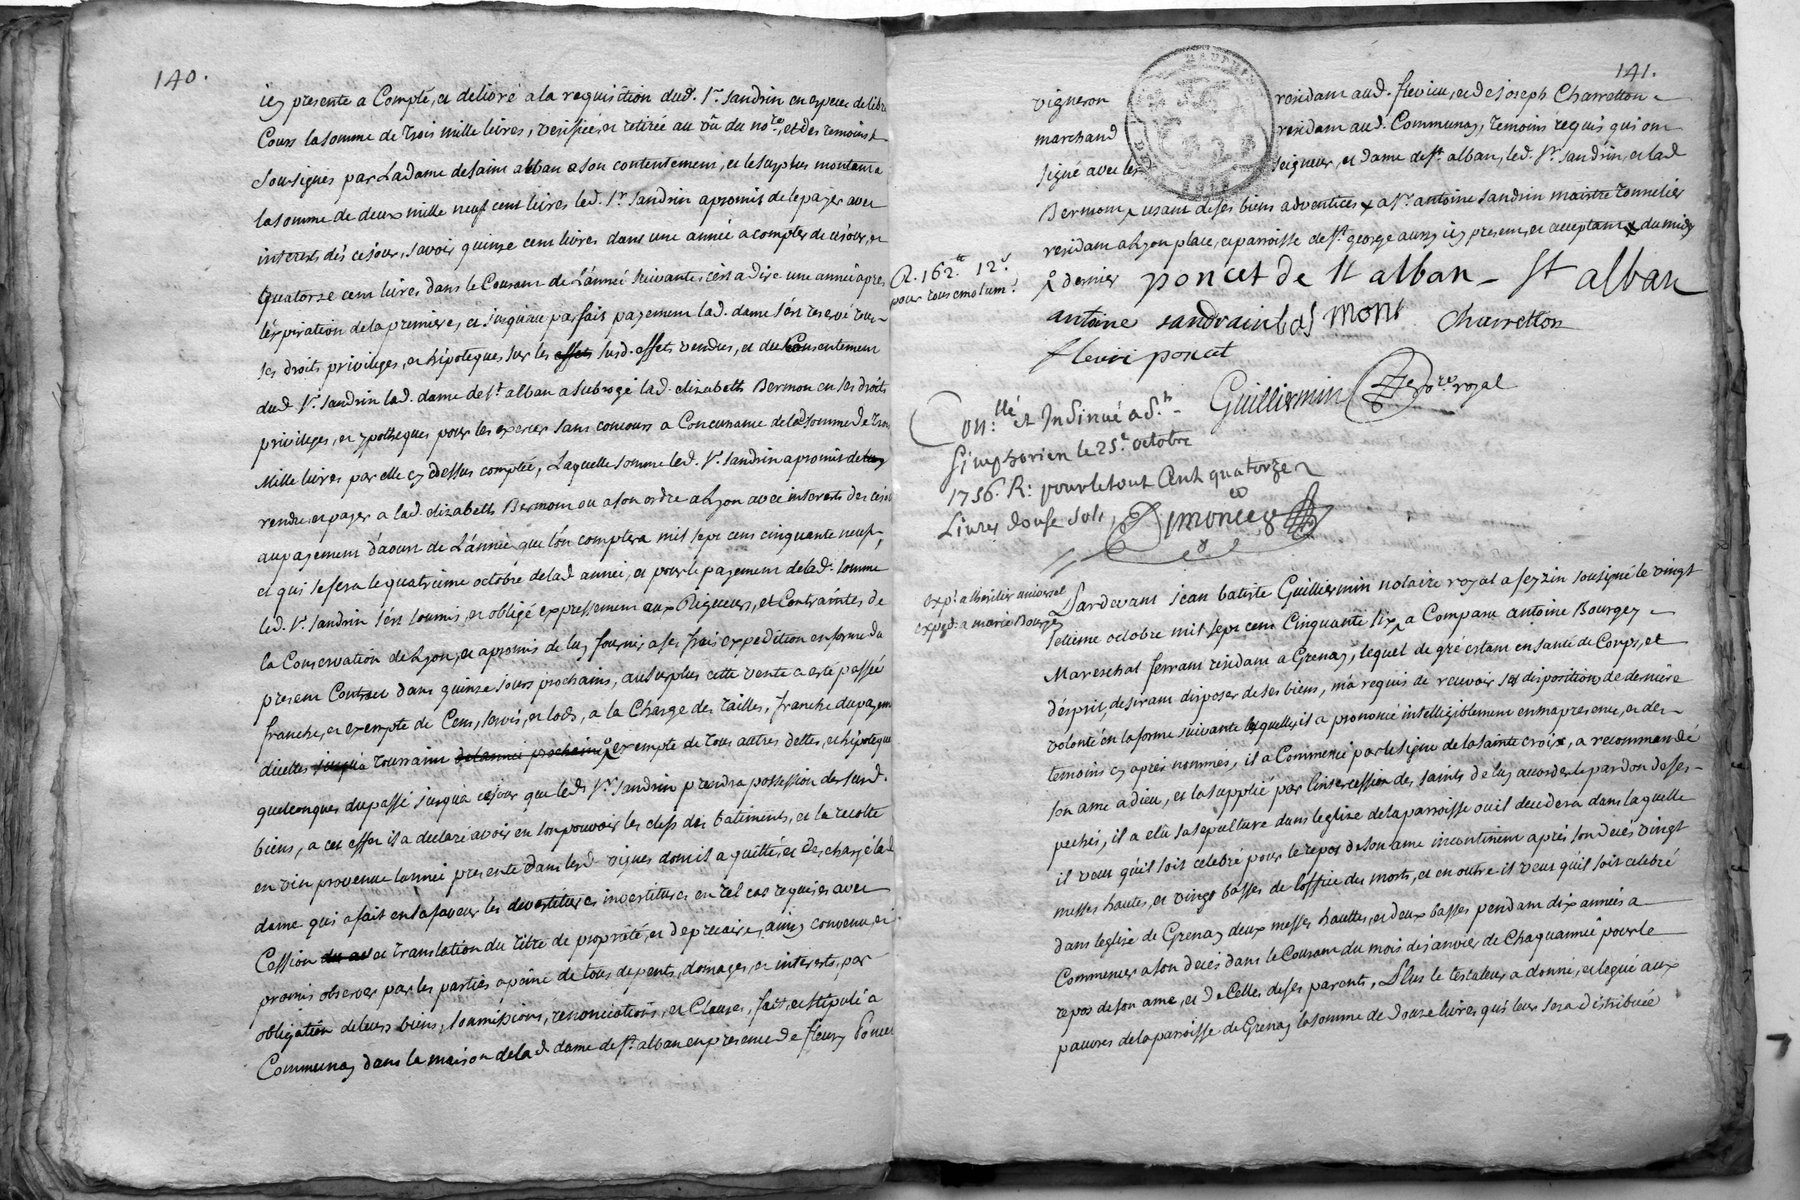 140.
icy presente a Compté, et delivré a la requisition dud. Sr. Sandrin en espece de libre
Cours la somme de trois mille livres, verifiée et retirée au vû du nore, et des temoins
Soussignés par Ladame de saint alban a son contentement, et le surplus montant a
la somme de deux mille neuf cent livres led. Sr. Sandrin a promis de le payer avec
interets dés ce jour, savoir quinze cent livres dans une année a compter de ce jour, et
quatorze cent livres dans le Courant de L'année suivante, c'est a dire une année apres
l'expiration de la premiere, et jusqu'au parfait payement lad. dame s'est reservé tous
ses droits privileges, et hipoteques sur les effets susd. effets vendus, et du Consentement
dud. Sr. Sandrin lad. dame de st. alban a subrogé lad. elizabeth Bermon en ses droits
privileges, et ypotheques pour les exercer sans concours a Concurance de la somme de trois
Mille livres par elle cy dessus comptée, Laquelle somme led. Sr. Sandrin a promis de luy
rendre et payer a lad. elizabeth Bermon ou a son ordre a Lyon avec interets des ce jour
au payement d'aoust de L'année que l'on comptera mil sept cent cinquante neuf,
et qui se fera le quatrieme octobre de lad. année, et pour le payement de lad. somme
led. Sr. Sandrin s'est soumis, et obligé expressement aux Rigueurs, et Contraintes de
la Conservation de Lyon, et a promis de luy fournir a ses frais expedition en forme du
present Contract dans quinze jours prochains, au surplus cette vente a esté passée
franche, et exempte de Cens, servis, et lods, a la Charge des tailles, franche du payem
d'icelles jusqu'a toussaint de l'année prochaine, exempte de tous autres dettes, et hipoteques
quelconques du passé jusqu'a ce jour que led. Sr. Sandrin prendra possession des susd.
biens, a cet effet il a declaré avoir en son pouvoir les clefs des batiments, et la recolte
en vin provenue l'année presente dans lesd. vignes dont il a quitté, et dechargé lad.
dame qui a fait en sa faveur les devestitures investitures en tel cas requises avec
Cession du et translation du titre de proprieté, et de precaire, ainsy convenu, et
promis observer par les parties a peine de tous depents, domages, et interets, par
obligation de leurs biens, soumissions, renonciations, et Clauses, fait, et stipulé a
Communay dans la maison de lad. dame de st. alban en presence de fleury Poncet
141.
vigneron residant aud. flevieu, et de joseph Charretton
marchand residant aud. Communay, temoins requis qui ont
signé avec les seigneur, et dame de st. alban, led. Sr. Sandrin, et lad
Bermon x usant de ses biens adventices x a Sr. antoine Sandrin maitre tonnelier
residant a Lyon place, et paroisse de st. george aussy icy present, et acceptant x du midy
R. 162tt 12s
pour tous emolum.
x dernier poncet de st alban - St alban
antoine sandrain bermont Charretton
fleuri poncet
Guilliermin nore royal
Conllé et Insinué a St.
Simphorien le 25e. octobre
1756. R: pour le tout Cent quatorze
Livres douse sols, Simonier
exp. a l'heritier universel
exped. a marie Bourgey
Pardevant jean batiste Guilliermin notaire royal a seyzin soussigné le vingt
settieme octobre mil sept cent Cinquante six, a Comparu antoine Bourgey
Mareschal ferrant residant a Grenay, lequel de gré estant en santé de Corps, et
d'esprit, desirant disposer de ses biens, m'a requis de recevoir ses dispositions de derniere
volonté en la forme suivante lesquelles il a prononcé intelligiblement en ma presence, et des
temoins cy aprés nommés, il a Commencé par le signe de la sainte croix, a recommandé
son ame a dieu, et la supplié par l'intercession des saints de luy accorder le pardon de ses
pechés, il a elu sa sepulture dans leglise de la parroisse ou il decedera dans laquelle
il veut qu'il soit celebré pour le repos de son ame incontinent aprés son decés vingt
messes hautes, et vingt basses de l'office des morts, et en outre il veut qu'il soit celebré
dans leglise de Grenay deux messes hauttes, et deux basses pendant dix années a
Commencer a son decés dans le Courant du mois de janvier de Chaque année pour le
repos de son ame, et de Celles de ses parents, Plus le testateur a donné, et legué aux
pauvres de la paroisse de Grenay la somme de douze livres qui leur sera distribuée